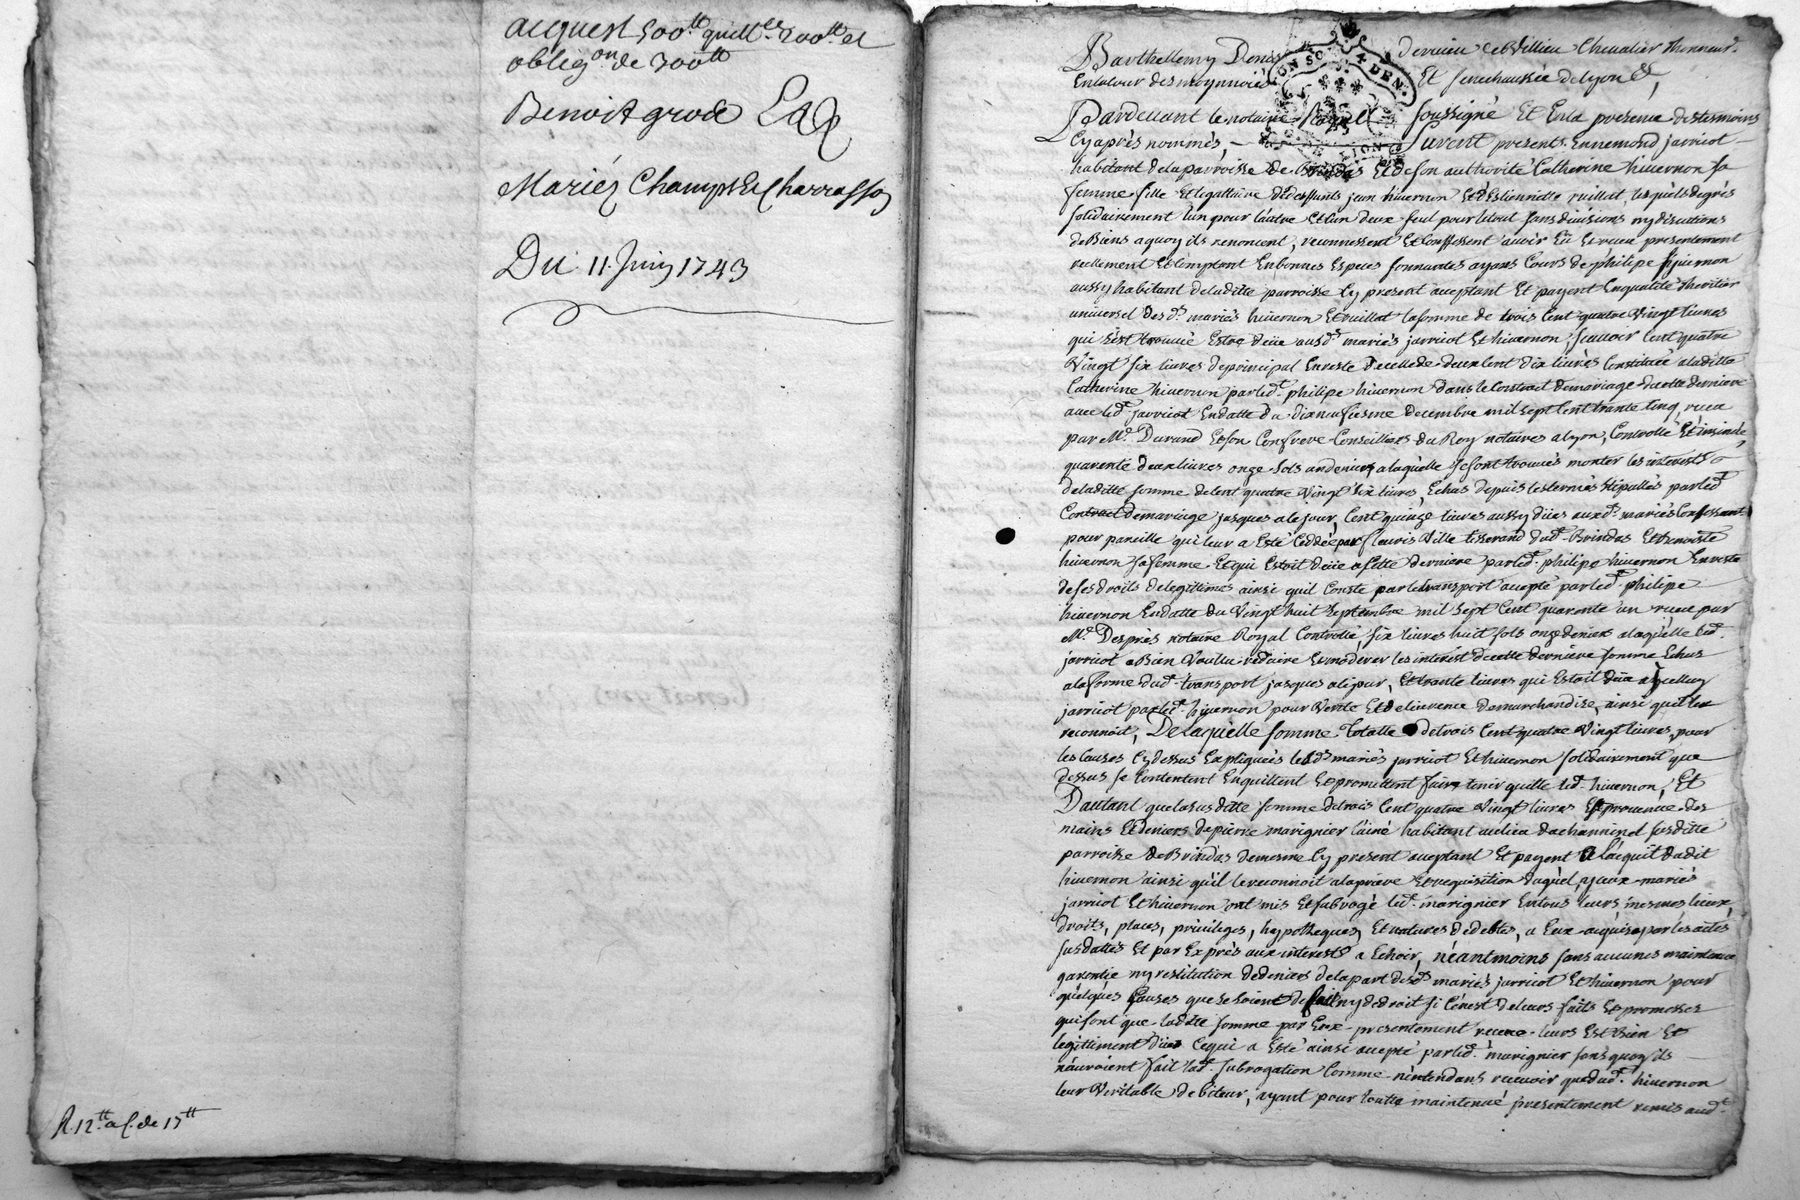 acquest 500tt quittce 200tt et
obligon de 300tt
Benoit grod
Mariés Champt Et Charrasson
Du 11 Juin 1743
R. 12tt a C. de 15tt
Barthellemy Denis derieu de Villieu Chevalier Dhonneur
En la Cour des monnoies Et senechaussée de Lyon
GEN. DE LION SOLS 4 DEN.
Pardevant le notaire Royal soussigné Et En la presence des tesmoins
Cy aprés nommés, Furent presents Ennemond jarricot
habitant de la parroisse de Brindas Et de son authorité Catherine hivernon sa
femme fille Et legattaire de deffunts jean hivernon Et Estiennette ruillat, lesquels de grés
solidairement l'un pour l'autre Et l'un deux seul pour le tout sans divisions ny discutions
de Biens a quoy ils renoncent, reconnessent Et Confessent avoir Eü Et receu presentement
reellement Et Comptant En bonnes Especes sonnantes ayans Cours de philipe hivernon
aussy habitant de laditte parroisse Cy present aceptant Et payent En qualité dheritier
universel des ds. mariés hivernon Et ruillat la somme de trois Cent quatre Vingt livres
qui s'est trouvée Estre deüe ausds mariés jarricot Et hivernon, scavoir Cent quatre
Vingt six livres de principal En reste de celle de deux Cent dix livres Constituée a laditte
Catherine hivernon par led. philipe hivernon dans le Contrait de mariage de cette derniere
avec led. jarricot En datte du dix neufiesme decembre mil sept Cent trante Cinq, receu
par Me. Durand Et son Confrere Conseillers du Roy notaires a lyon, Controllé Et insinüé,
quarente deux livres onze sols un denier a laquelle se sont trouvés monter les interests
de laditte somme de Cent quatre Vingt six livres, Echus depuis les termes stipullés par led.
Contract de mariage jusques a Ce jour, Cent quinze livres aussy düe aux ds. mariés Confessant
pour pareille qui leur a Esté Ceddée par fleuris Ville tisserand dud. Brindas Et Benoiste
hivernon sa femme Et qui Estoit deüe a Cette derniere par led. philipe hivernon En reste
de ses droits de legitimes ainsi quil Conste par le transport acepté par led. philipe
hivernon En datte du Vingt huit septembre mil sept Cent quarante un receu par
Me. Desprès notaire Royal Controllé, six livres huit sols onze deniers a laquelle led.
jarricot a Bien Voullu reduire Et moderer les interest de cette derniere somme Echus
a la forme dud. transport jusques a ce jour, Et trante livres qui Estoit düe a jcelluy
jarricot par led. hivernon pour Vente Et delivrence de marchandise, ainsi quil le
reconnoit, De laquelle somme Totalle de trois Cent quatre Vingt livres, pour
les Causes Cy dessus Expliquées lesds mariés jarricot Et hivernon solidairement que
dessus se Contentent En quittent Et promettent faire tenir quitte led. hivernon, Et
Dautant que la susditte somme de trois Cent quatre Vingt livres Est provenüe des
mains Et deniers de pierre marignier l'ainé habitant au lieu de susditte
parroisse de Brindas de mesme Cy present aceptant Et payent a l'acquit dudit
hivernon ainsi qu'il le reconnoit a la priere Et requisition duquel, yceux mariés
jarricot Et hivernon ont mis Et subrogé led. marignier En tous leurs mesmes lieux,
droits, places, privileges, hypotheques, Et natures de debtes, a Eux acquise par les actes
sus dattés Et par Exprès aux interests a Echoir, néantmoins sans aucunes maintenüe
garentie ny restitution de deniers de la part desds. mariés jarricot Et hivernon pour
quelques Causes que se soient de fait ny de droit si Ce n'est de leurs faits Et promesses
qui sont que laditte somme par Eux presentement receue leurs Est Bien Et
legittiment düe Ce qui a Esté ainsi acepté par led. marignier sans quoy ils
n'auroient fait lad. subrogation Comme n'entendans recevoir que dud. hivernon
leur Veritable debiteur, ayant pour toutte maintenüe presentement remis aud.